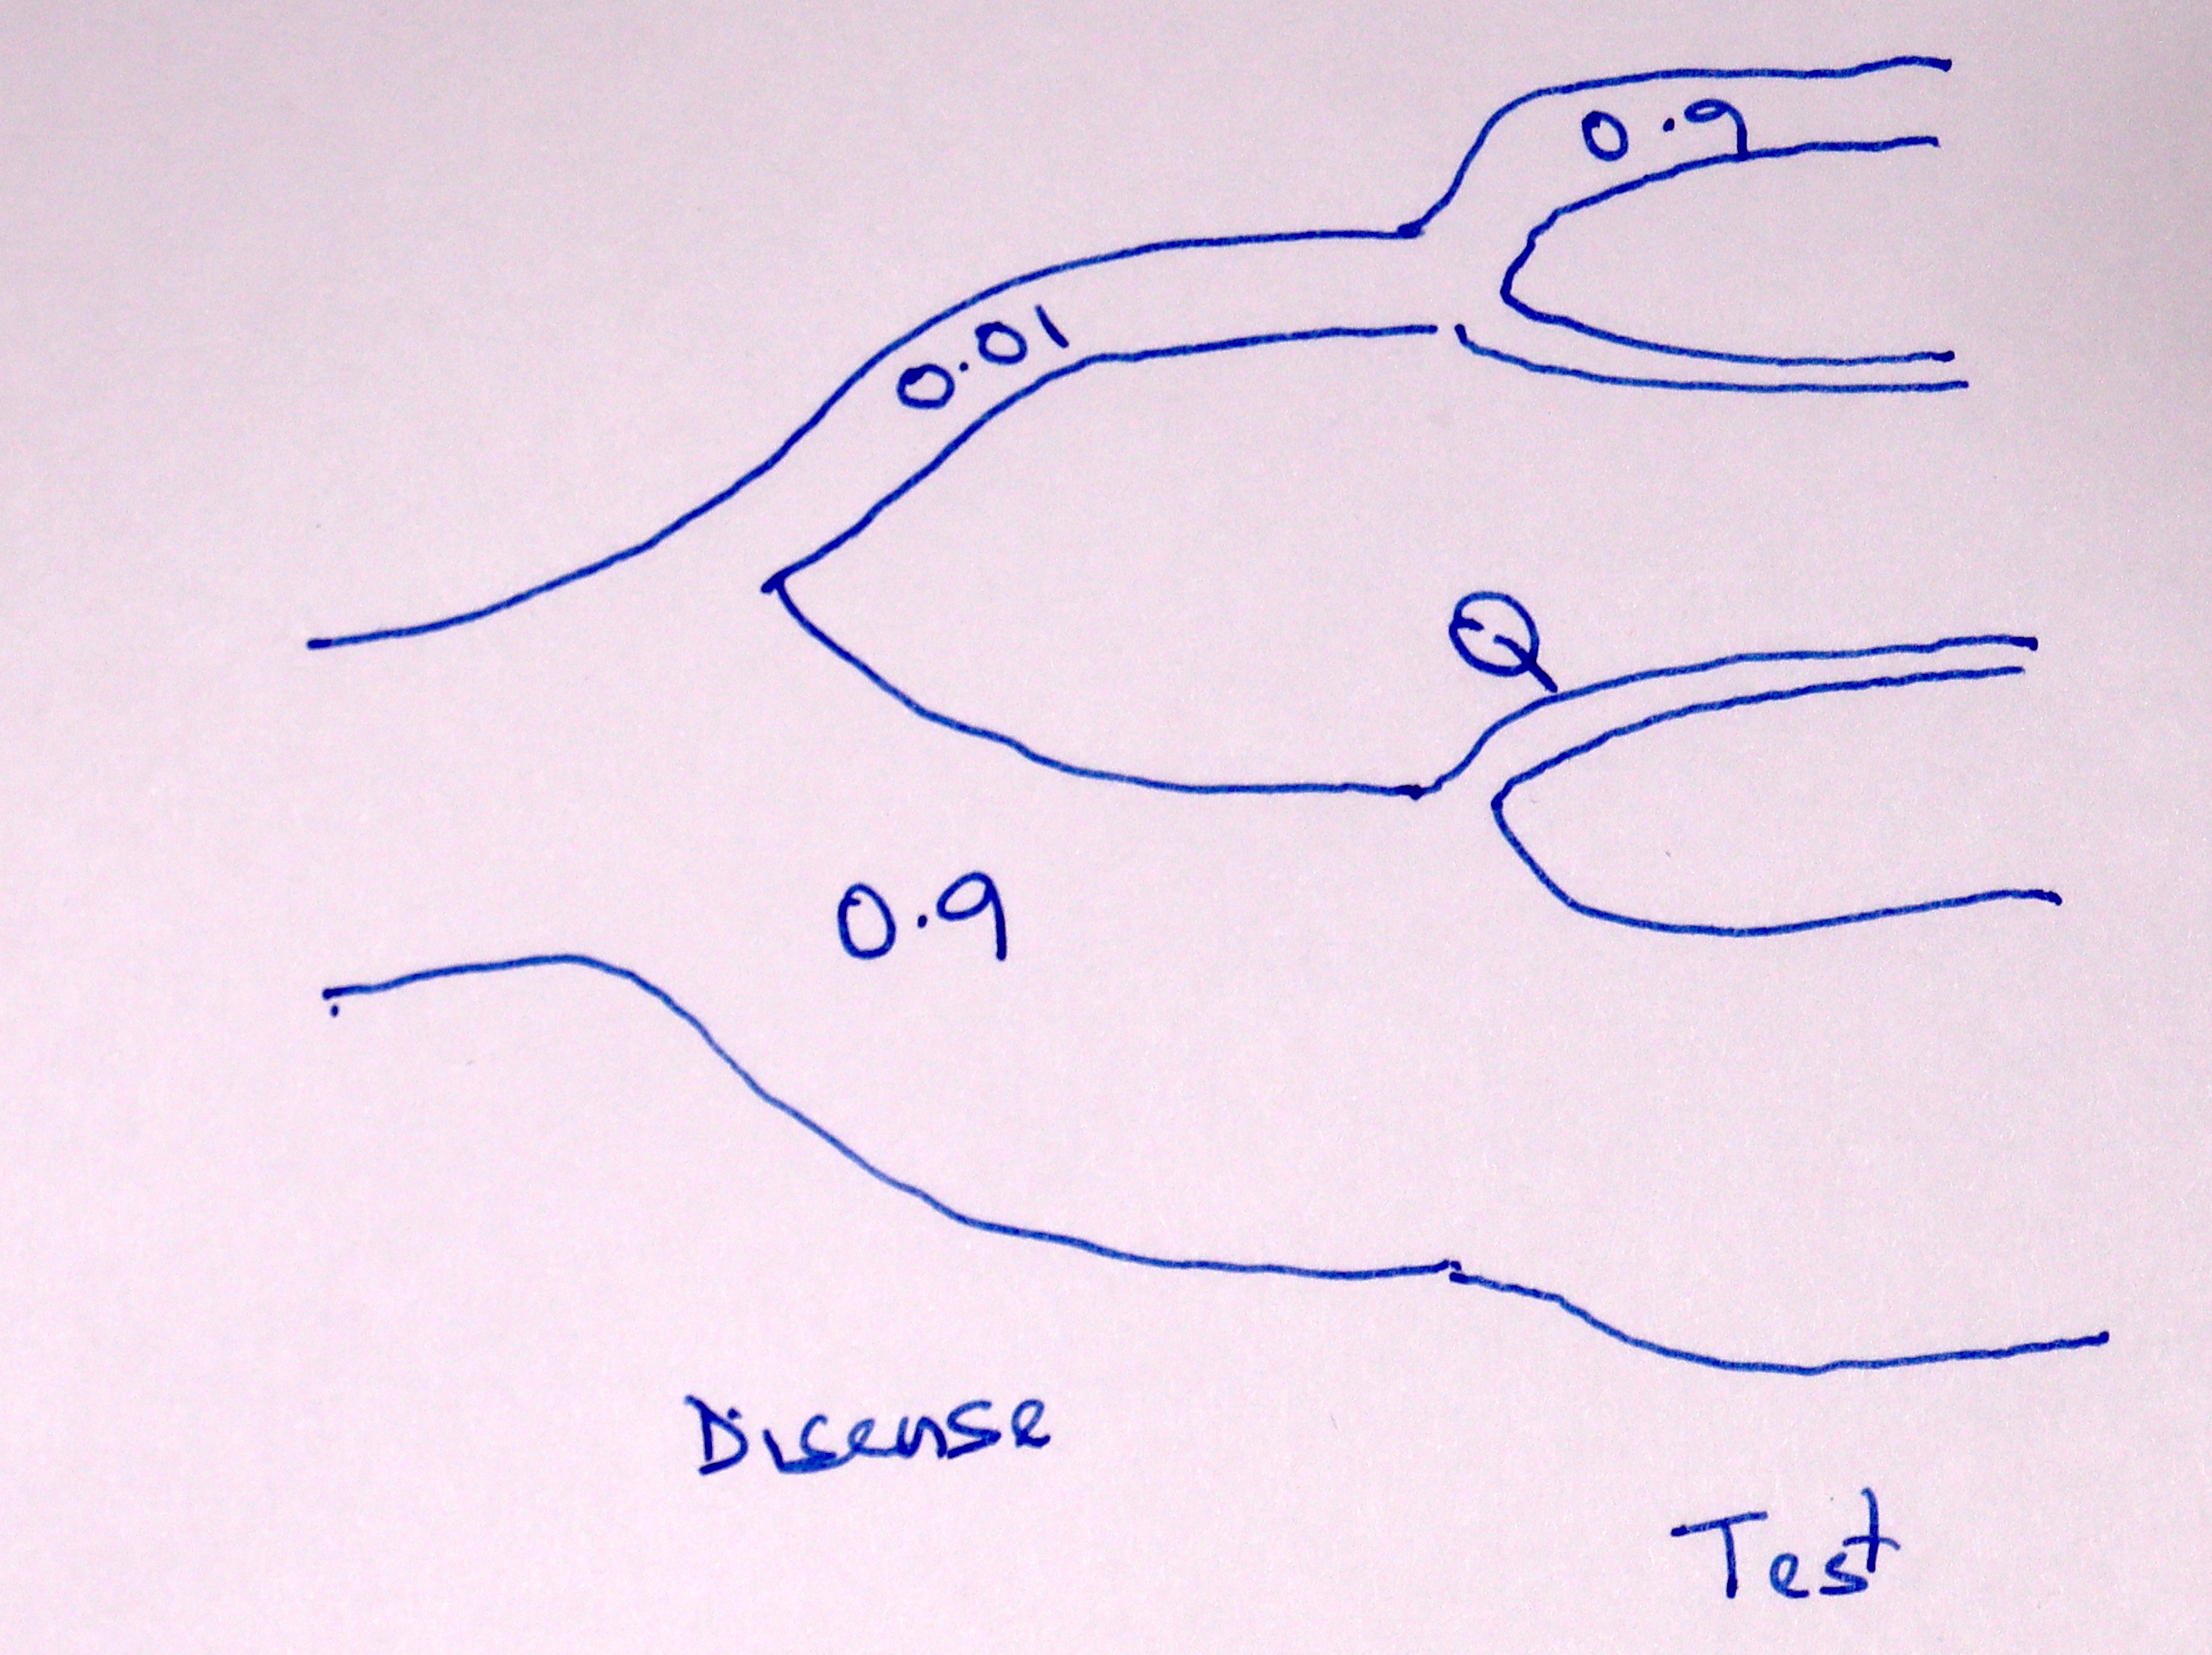 0.9
0.01
Q
0.9
Disease
Test